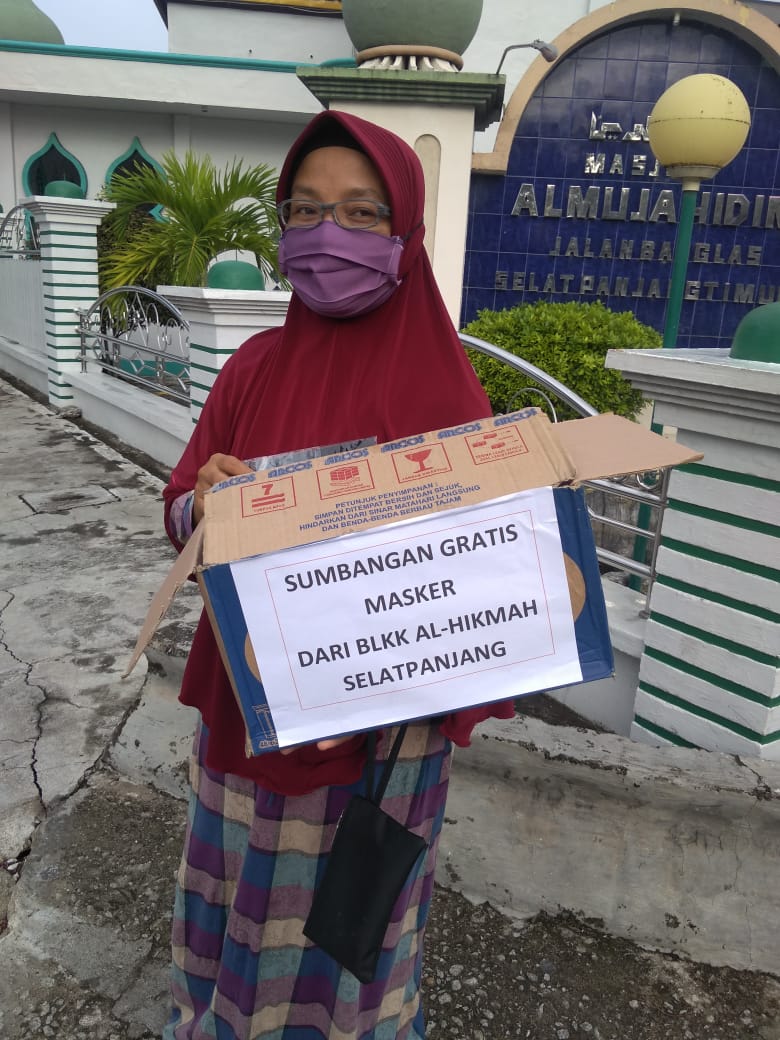 MASJ
ALMUJAHIDIN
JALAN BANGLAS
SELATPANJANG TIMU
ARCOS ARCOS ARCOS ARCOS ARCOS
7
PETUNJUK PENYIMPANAN :
SIMPAN DITEMPAT BERSIH DAN SEJUK,
HINDARKAN DARI SINAR MATAHARI LANGSUNG
DAN BENDA-BENDA BERBAU TAJAM
SUMBANGAN GRATIS
MASKER
DARI BLKK AL-HIKMAH
SELATPANJANG